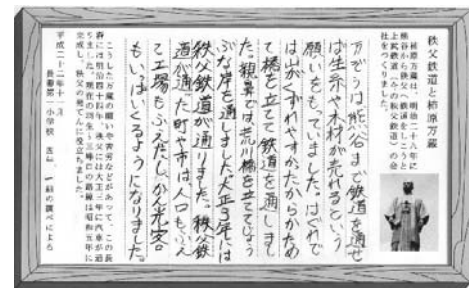 秩父鉄道と柿原万蔵
柿原万蔵は、明治二十八年に
熊谷から秩父へ鉄道をしこうと
上武鉄道(今の秩父鉄道)の会
社をつくりました。
万ぞうは熊谷まで鉄道を通せ
ば生糸や木材が売れるという
願いをもっていました。はぐれで
は山がくずれやすかったからかため
て橋を立てて鉄道を通しまし
た。親鼻では荒川橋を立てじょう
ぶな岸を通しました。大正3年には
秩父鉄道が通りました。秩父鉄
道が通った町や市は人口もふえ
て工場もふえたし、かん光客
もいっぱいくるようになりました。
こうした万蔵の願いや苦労などがあって、この長
瀞には明治四十四年、秩父には大正三年に汽車が通
りました。現在の羽生~三峰口の路線は昭和五年に
完成し、秩父の発てんに役立ちました。
平成二十二年十一月
長瀞第一小学校 五年 一組の調べによる